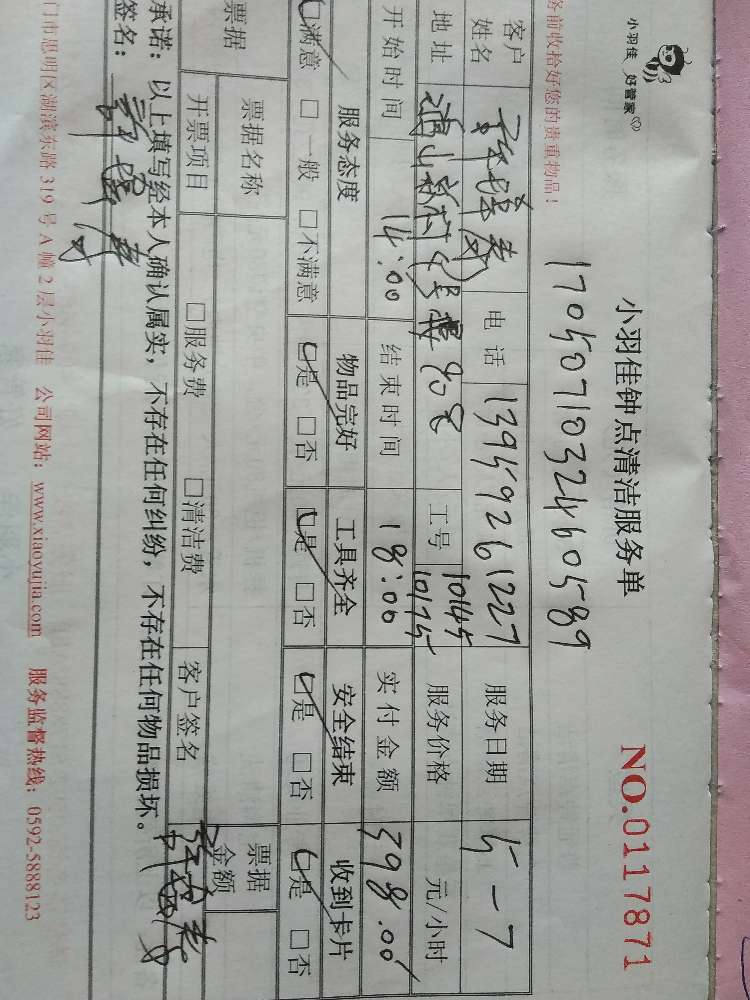 小羽佳 好管家
务前收拾好您的贵重物品！
小羽佳钟点清洁服务单
NO.0117871
1705071032460589
客户姓名 电话 13959261227 服务日期 5-7
地址 工号 10145 10175 服务价格 元/小时
开始时间 14:00 结束时间 18:00 实付金额 398.00
服务态度 物品完好 工具齐全 安全结束 收到卡片
☑满意 □一般 □不满意 ☑是 □否 ☑是 □否 ☑是 □否 ☑是 □否
票据 票据名称 票据金额
开票项目 □服务费 □清洁费 客户签名
承诺：以上填写经本人确认属实，不存在任何纠纷，不存在任何物品损坏。
签名：
门市思明区湖滨东路 319 号 A 幢 2 层小羽佳 公司网站：www.xiaoyujia.com 服务监督热线：0592-5888123